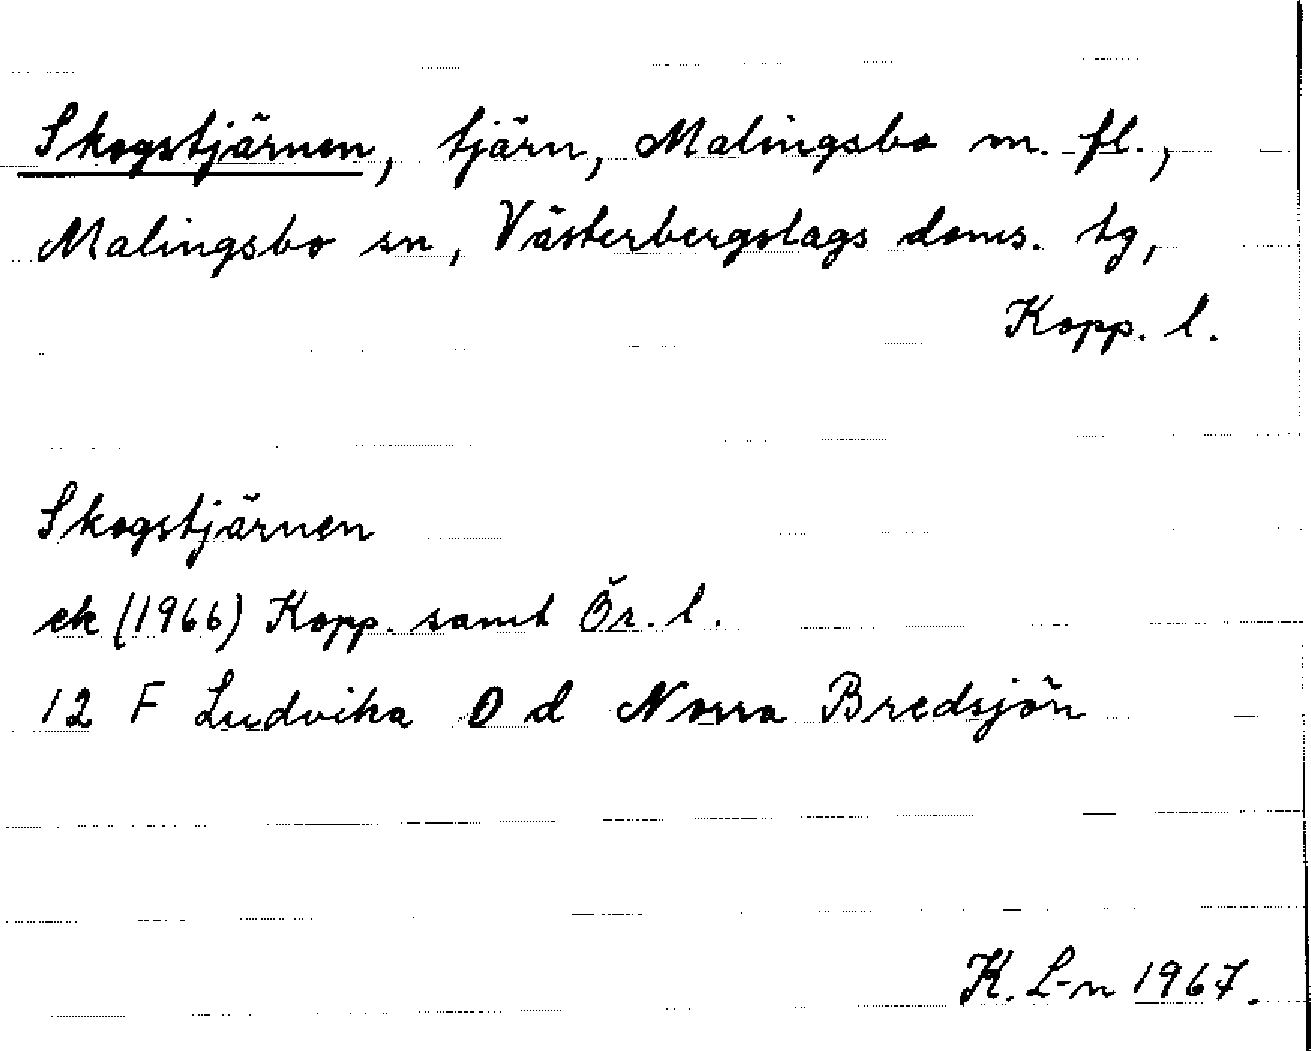 Skogstjärnen, tjärn, Malingsbo m. fl.,
Malingsbo sn, Västerbergslags doms. tg,
Kopp. l.
Skogstjärnen
ek (1966) Kopp. samt Ör. l.
12 F Ludvika 0 d Norra Bredsjön
K. L-n 1967.